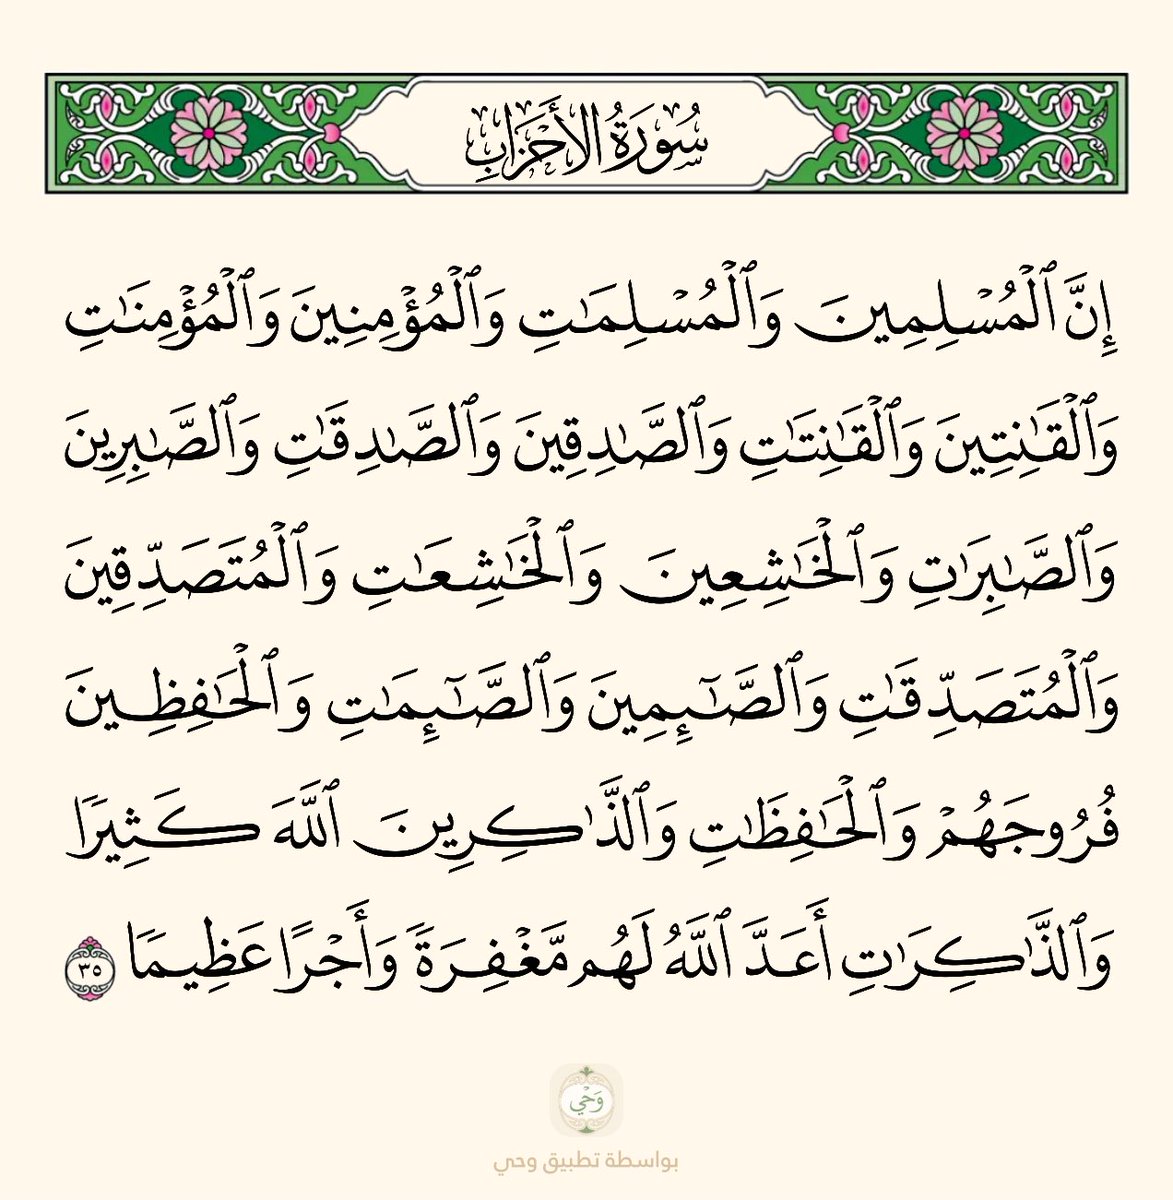 سُورَةُ الأَحْزَابِ
إِنَّ ٱلْمُسْلِمِينَ وَٱلْمُسْلِمَـٰتِ وَٱلْمُؤْمِنِينَ وَٱلْمُؤْمِنَـٰتِ
وَٱلْقَـٰنِتِينَ وَٱلْقَـٰنِتَـٰتِ وَٱلصَّـٰدِقِينَ وَٱلصَّـٰدِقَـٰتِ وَٱلصَّـٰبِرِينَ
وَٱلصَّـٰبِرَٰتِ وَٱلْخَـٰشِعِينَ وَٱلْخَـٰشِعَـٰتِ وَٱلْمُتَصَدِّقِينَ
وَٱلْمُتَصَدِّقَـٰتِ وَٱلصَّـٰٓئِمِينَ وَٱلصَّـٰٓئِمَـٰتِ وَٱلْحَـٰفِظِينَ
فُرُوجَهُمْ وَٱلْحَـٰفِظَـٰتِ وَٱلذَّٰكِرِينَ ٱللَّهَ كَثِيرًا
وَٱلذَّٰكِرَٰتِ أَعَدَّ ٱللَّهُ لَهُم مَّغْفِرَةً وَأَجْرًا عَظِيمًا ٣٥
وَحْي
بواسطة تطبيق وحي